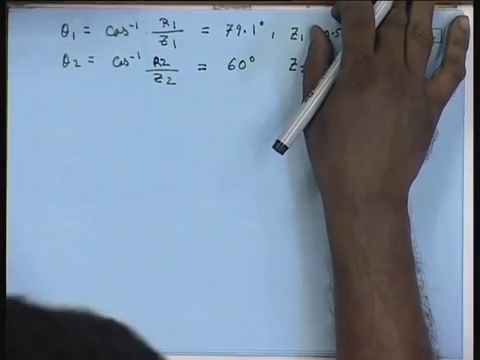 θ₁ = cos⁻¹ R1/Z1 = 79.1°, Z1
θ2 = cos⁻¹ R2/Z2 = 60° Z2